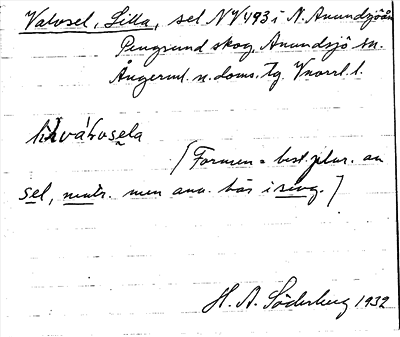 Valvsel, Lilla, sel NV493 i N. Anundsjöån
Pengsund skog, Anundsjö sn.
Ångerml. n. doms. tg. Vnorrl. l.
[Formen = best. plur. av
sel, neutr. men anv. här i sing.]
H. A. Söderberg 1932